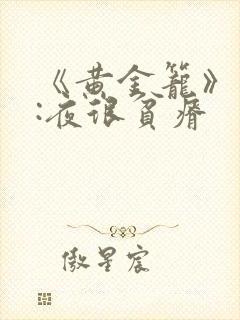 《黄金籠》
:夜很貧瘠
傲星宸